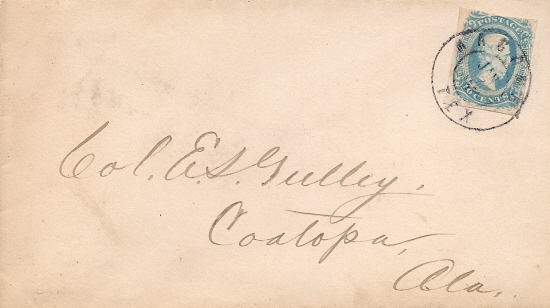 POSTAGE
CENTS
WACO
TEX
Col. E.S. Gulley,
Coatopa,
Ala.